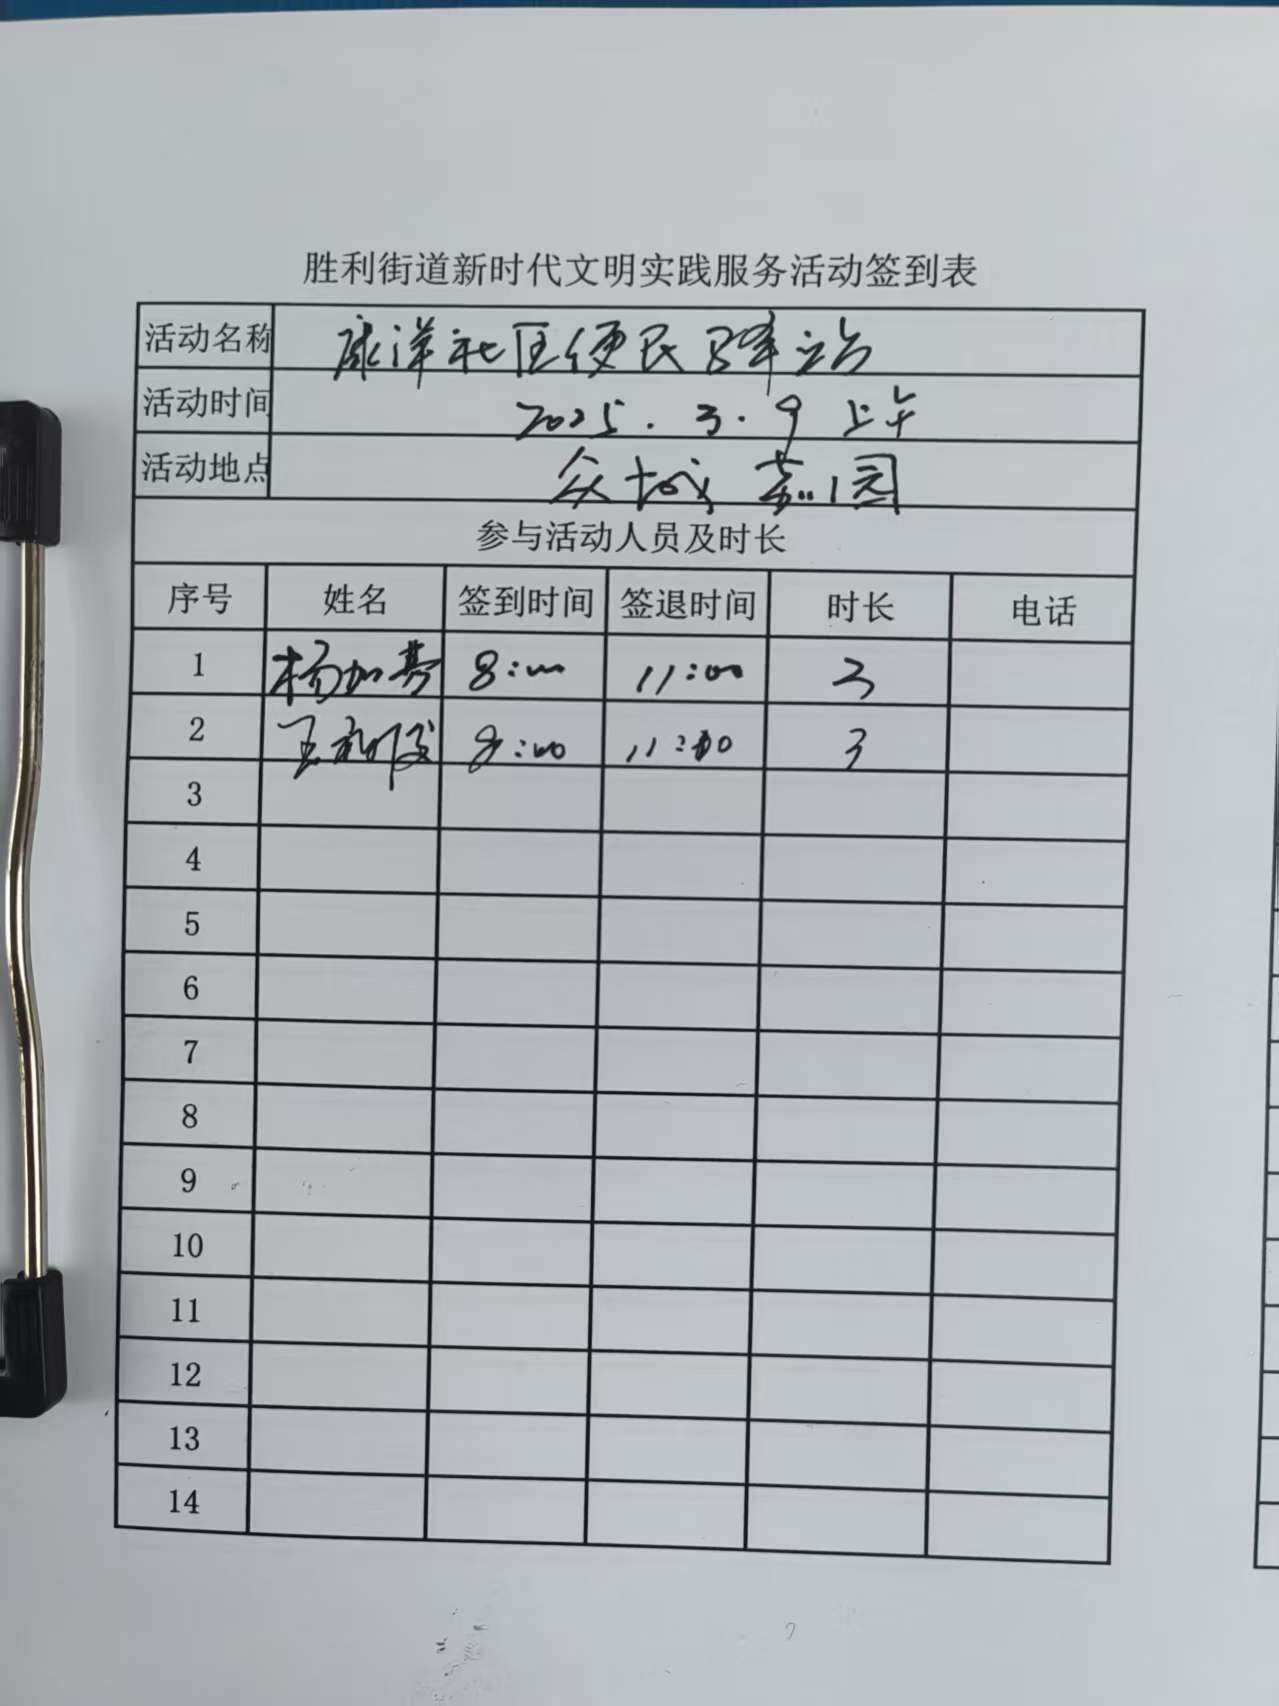 胜利街道新时代文明实践服务活动签到表
活动名称 康洋社区便民驿站
活动时间 2025.3.9 上午
活动地点 众城嘉园
参与活动人员及时长
序号 姓名 签到时间 签退时间 时长 电话
1 杨加芬 8:00 11:00 3
2 王 8:00 11:00 3
3
4
5
6
7
8
9
10
11
12
13
14